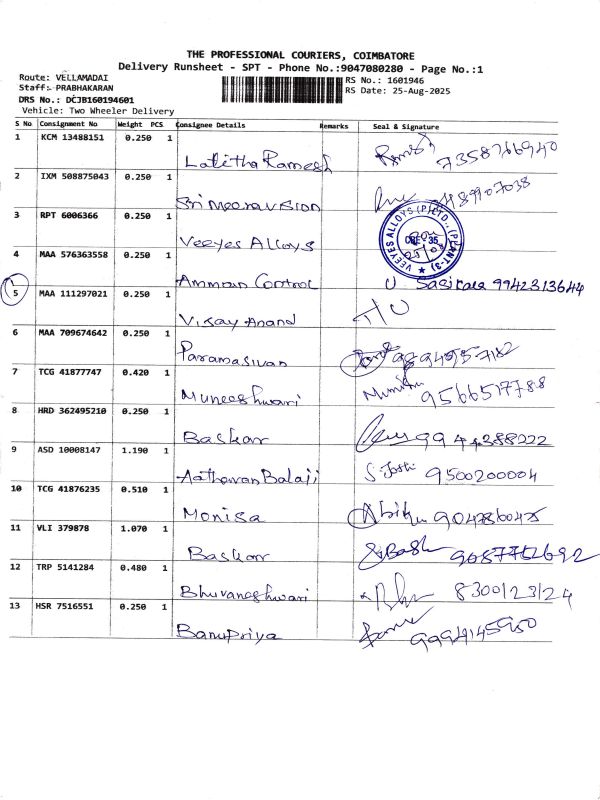 THE PROFESSIONAL COURIERS, COIMBATORE
Delivery Runsheet - SPT - Phone No.:9047080280 - Page No.:1
Route: VELLAMADAI
Staff: PRABHAKARAN
DRS No.: DCJB160194601
Vehicle: Two Wheeler Delivery
RS No.: 1601946
RS Date: 25-Aug-2025
S No Consignment No Weight PCS Consignee Details Remarks Seal & Signature
1 KCM 13488151 0.250 1
Lalitha Ramesh 7358766940
2 IXM 508875043 0.250 1
Sri Meeravision
3 RPT 6006366 0.250 1
Veeyes Alloys
VEEYES ALLOYS (P) LTD., (PLANT-3)
CBE-35
4 MAA 576363558 0.250 1
Amman Control Sasikala 9942313644
5 MAA 111297021 0.250 1
Vijay Anand
6 MAA 709674642 0.250 1
Paramasivan
7 TCG 41877747 0.420 1
Muneeshwari 9566517788
8 HRD 362495210 0.250 1
Baskar
9 ASD 10008147 1.190 1
Aathavan Balaji 9500200004
10 TCG 41876235 0.510 1
Monisa
11 VLI 379878 1.070 1
Baskar
12 TRP 5141284 0.480 1
Bhuvaneshwari 8300123124
13 HSR 7516551 0.250 1
Banupriya 9994145950